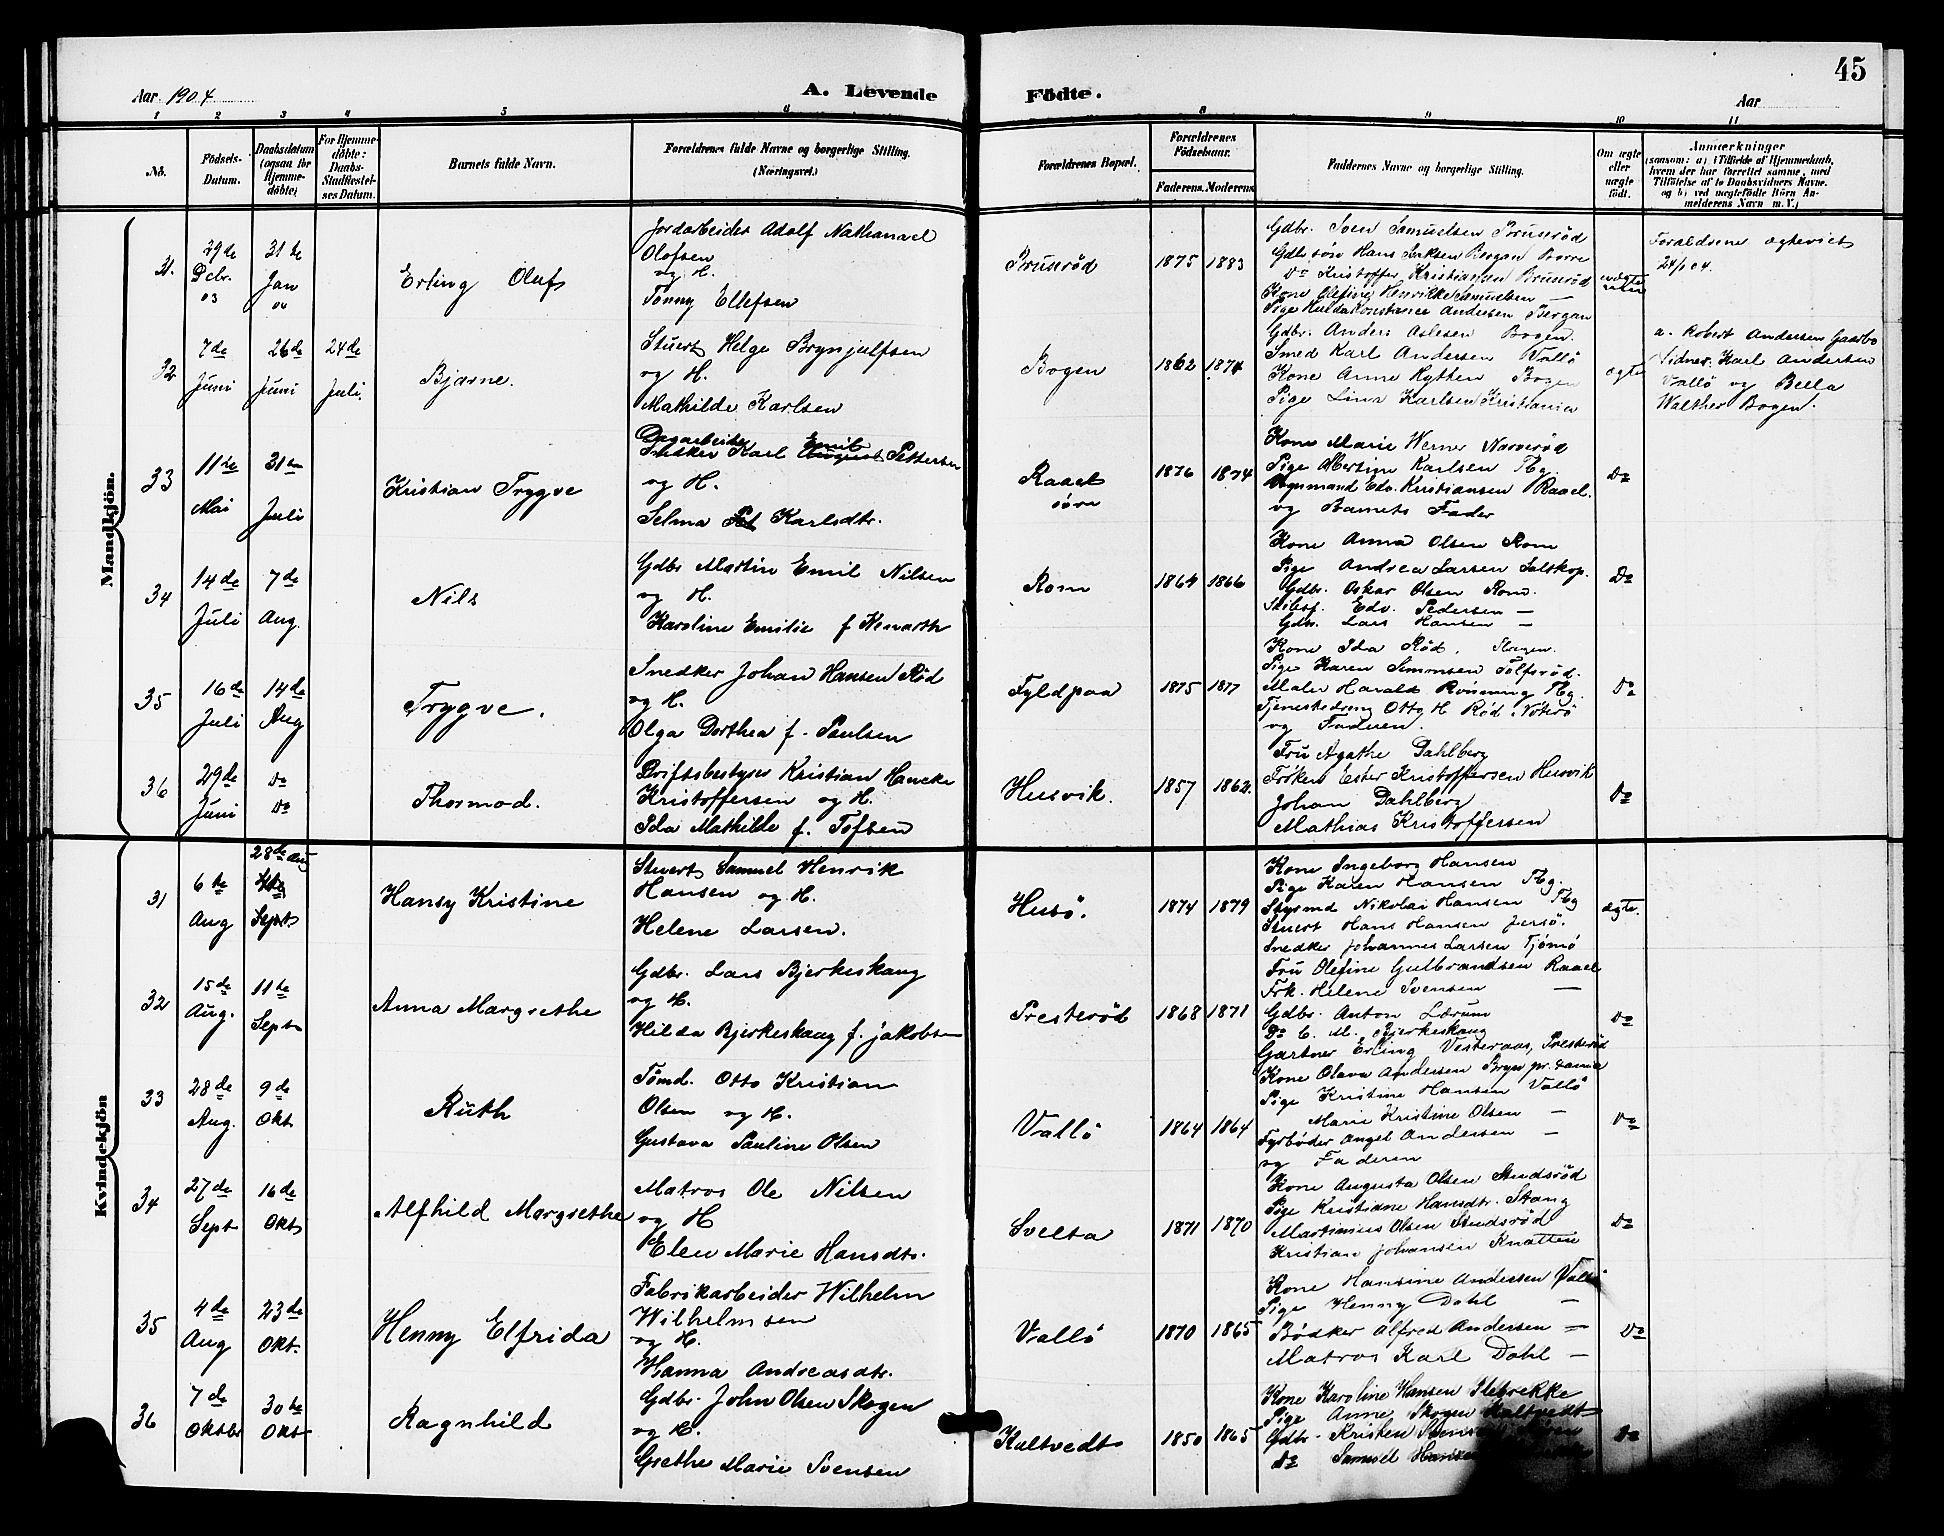 45
Aar 1904
A. Levende
Födte.
Aar
1 2 3 4 5 6 8 9 10 11
No.
Födsels-
Datum.
Daabsdatum
(ogsaa for
Hjemme-
döbte)
For Hjemme-
döbte:
Daabs-
Stadfæstel-
ses Datum.
Barnets fulde Navn.
Forældrenes fulde Navne og borgerlige Stilling.
(Næringsvei.)
Forældrenes Bopæl.
Forældrenes
Födselsaar.
Faderens. Moderens.
Faddernes Navne og borgerlige Stilling.
Om ægte
eller
uægte
födt.
Anmærkninger
(saasom: a) i Tilfælde af Hjemmedaab,
hvem der har forrettet samme, med
Tilföielse af to Daabsvidners Navne,
og b) ved uægtefödte Börn An-
melderens Navn m. V.)
Mandkjön.
31.
29de
Debr.
03
31te
Jan
04
Erling Oluf
Jordarbeider Adolf Nathanael
Olofsen
og H.
Tonny Ellefsen
Brunrød
1875 1883
Gdbr. Sven Samuelsen Brunrød
Gdbrsøn Hans Isaksen Bergan Borre
Do Kristoffer Kristiansen Brunrød
Kone Olefine Henrikke Samuelsen —
Pige Hulda Konstance Andersen Bergan
uægte
Forældrene ægteviet
24/1 04.
32
7de
Juni
26de
Juni
24de
Juli.
Bjarne.
Stuert Helge Brynjulfsen
og H.
Mathilde Karlsen
Bogen
1862 1874
Gdbr. Anders Aslesen Bogen.
Smed Karl Andersen Vallö
Kone Anne Hytten Bogen
Pige Lina Karlsen Kristiania
ægte
a. Robert Andersen Gaarbo
Vidner, Karl Andersen
Vallö og Bella
Walther Bogen.
33
11te
Mai
31te
Juli
Kristian Trygve
Dagarbeider Emil
Snedker Karl August Pettersen
og H.
Selma Pet Karlsdtr.
Raael
øvre
1876 1874
Kone Marie Werner Narverød
Pige Albertine Karlsen Tbg.
Styrmand Edv. Kristiansen Raael.
og Barnets Fader
Do
34
14de
Juli
7de
Aug.
Nils
Gdbr Martin Emil Nilsen
og H.
Karoline Emilie f Kenarth
Rom
1864 1866
Kone Anna Olsen Rom
Pige Andrea Larsen Jelskop.
Gdbr. Oskar Olsen Rom.
Skibsf. Edv. Pedersen —
Gdbr. Lars Hansen —
Do
35
16de
Juli
14de
Aug
Trygve.
Snedker Johan Hansen Rød
og H.
Olga Dorthea f. Paulsen
Fyldpaa
1875 1877
Kone Ida Rød, Slagen.
Pige Karen Simmsen Tolfsrød.
Maler Harald Rønning Tbg.
Tjenestedreng Otto H Rød, Nøterø
og Faderen
Do
36
29de
Juni
Do
Do
Thormod.
Driftsbestyrer Kristian Hancke
Kristoffersen og H.
Ida Mathilde f. Tofsen
Husvik.
1857 1862.
Fru Agathe Dahlberg
Frøken Ester Kristoffersen Husvik
Johan Dahlberg
Mathias Kristoffersen
Do
Kvindekjön
31
6te
Aug
28de Aug
4de
Sept.
Hansy Kristine
Stuert Samuel Henrik
Hansen og H.
Helene Larsen.
Husö.
1874 1879
Kone Ingeborg Hansen
Pige Karen Hansen Tbg.
Styrmd Nikolai Hansen Tbg
Stuert Hans Hansen Jersö.
Snedker Johannes Larsen Tjømø
ægte.
32
15de
Aug.
11te
Sept
Anna Margrethe
Gdbr. Lars Bjerkeskaug
og H.
Hilda Bjerkeskaug f. Jakobsen
Presterød
1868 1871
Fru Olefine Gulbrandsen Raael
Frk. Helene Svensen —
Gdbr. Anton Lærum
Do C. M. Bjerkeskaug
Gartner Erling Vesteraas, Presterød
Do
33
28de
Aug.
9de
Okt
Ruth
Tömd. Otto Kristian
Olsen og H.
Gustava Pauline Olsen
Vallö
1864 1864
Kone Olava Andersen Bryn pr.
Pige Kristine Hansen Vallö
Marie Kristine Olsen —
Fyrbøder Angel Andersen —
og Faderen
Do
34
27de
Sept
16de
Okt
Alfhild Margrethe
Matros Ole Nilsen
og H
Elen Marie Hansdtr.
Svelta
1871 1870
Kone Augusta Olsen Studsrød
Pige Kristiane Hansdtr. Stang
Martinius Olsen Studsrød
Kristian Johansen Knatten
Do
35
4de
Aug
23de
Okt.
Henny Elfrida
Fabrikarbeider Wilhelm
Wilhelmsen
og H.
Hanna Andreasdtr.
Vallö
1870 1865
Kone Hansine Andersen Vallö
Pige Henny Dahl —
Bødker Alfred Andersen —
Matros Karl Dahl —
Do
36
7de
Oktbr
30te
Okt
Ragnhild
Gdbr. John Olsen Skogen
og H.
Grethe Marie Svensen
Kaltvedt
1850 1865
Kone Karoline Hansen
Pige Anne Skogen Kaltvedt
Gdbr. Kristen
Do Samuel Hansen
Do